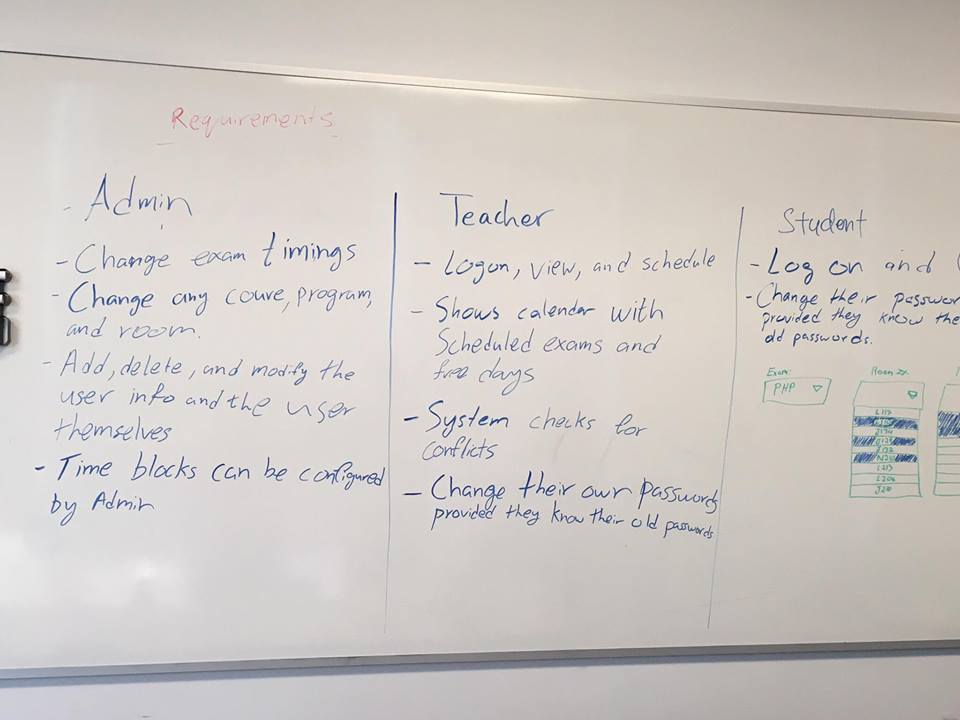 Requirements
- Admin
- Change exam timings
- Change any couve, program,
and room.
- Add, delete, and modify the
user info and the user
themselves
- Time blocks can be configured
by Admin
Teacher
- Logon, view, and schedule
- Shows calender with
Scheduled exams and
free days
- System checks for
conflicts
- Change their own passwords
provided they know their old passwords
Student
- Log on and
- Change their passwor
provided they know the
old passwords.
Exam:
PHP
L117
J132
L213